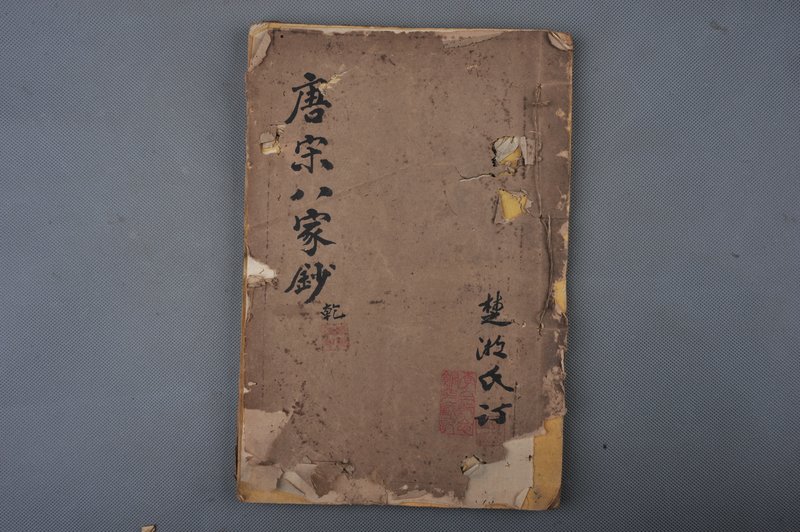 唐宋八家鈔
乾
楚湘氏訂